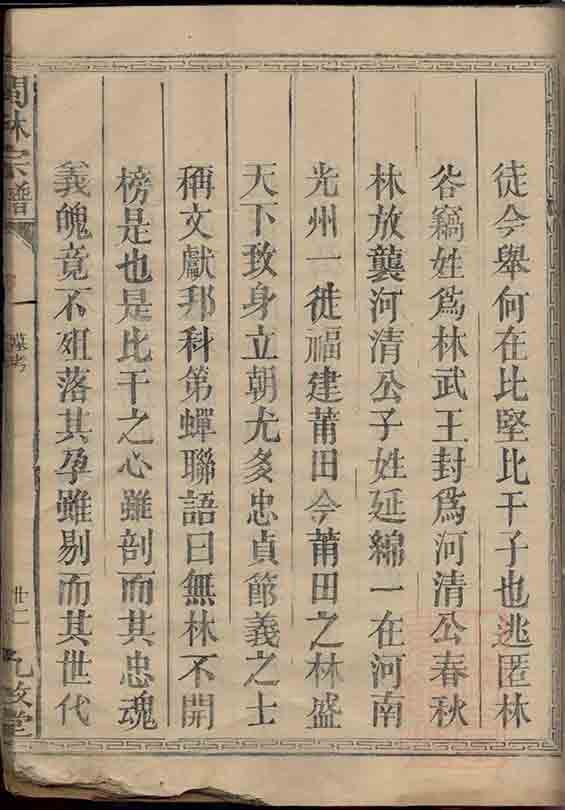 徒今舉何在比堅比干子也逃匿林
谷竊姓爲林武王封爲河清公春秋
林放襲河清公子姓延綿一在河南
光州一徙福建莆田今莆田之林盛
天下致身立朝尤多忠貞節義之士
稱文獻邦科第蟬聯語曰無林不開
榜是也是比干之心雖剖而其忠魂
義魄竟不殂落其孕雖剔而其世代
林宗譜
墓考
廿一
九牧堂